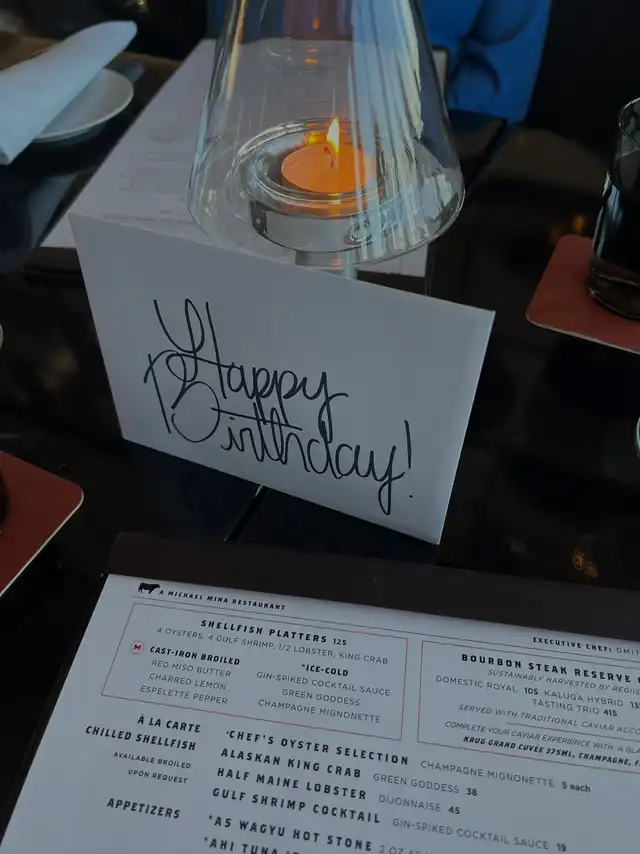 Happy
Birthday!
A MICHAEL MINA RESTAURANT
EXECUTIVE CHEF:
SHELLFISH PLATTERS 125
4 OYSTERS, 4 GULF SHRIMP, 1/2 LOBSTER, KING CRAB
M CAST-IRON BROILED
RED MISO BUTTER
CHARRED LEMON
ESPELETTE PEPPER
*ICE-COLD
GIN-SPIKED COCKTAIL SAUCE
GREEN GODDESS
CHAMPAGNE MIGNONETTE
BOURBON STEAK RESERVE
SUSTAINABLY HARVESTED BY
DOMESTIC ROYAL 105 KALUGA HYBRID
TASTING TRIO 415
SERVED WITH TRADITIONAL CAVIAR
COMPLETE YOUR CAVIAR EXPERIENCE WITH A
KRUG GRAND CUVÉE 375ML, CHAMPAGNE,
À LA CARTE
CHILLED SHELLFISH
AVAILABLE BROILED
UPON REQUEST
*CHEF'S OYSTER SELECTION CHAMPAGNE MIGNONETTE 5 each
ALASKAN KING CRAB GREEN GODDESS 38
HALF MAINE LOBSTER DIJONNAISE 45
GULF SHRIMP COCKTAIL GIN-SPIKED COCKTAIL SAUCE 19
APPETIZERS
*A5 WAGYU HOT STONE 2
*AHI TUNA